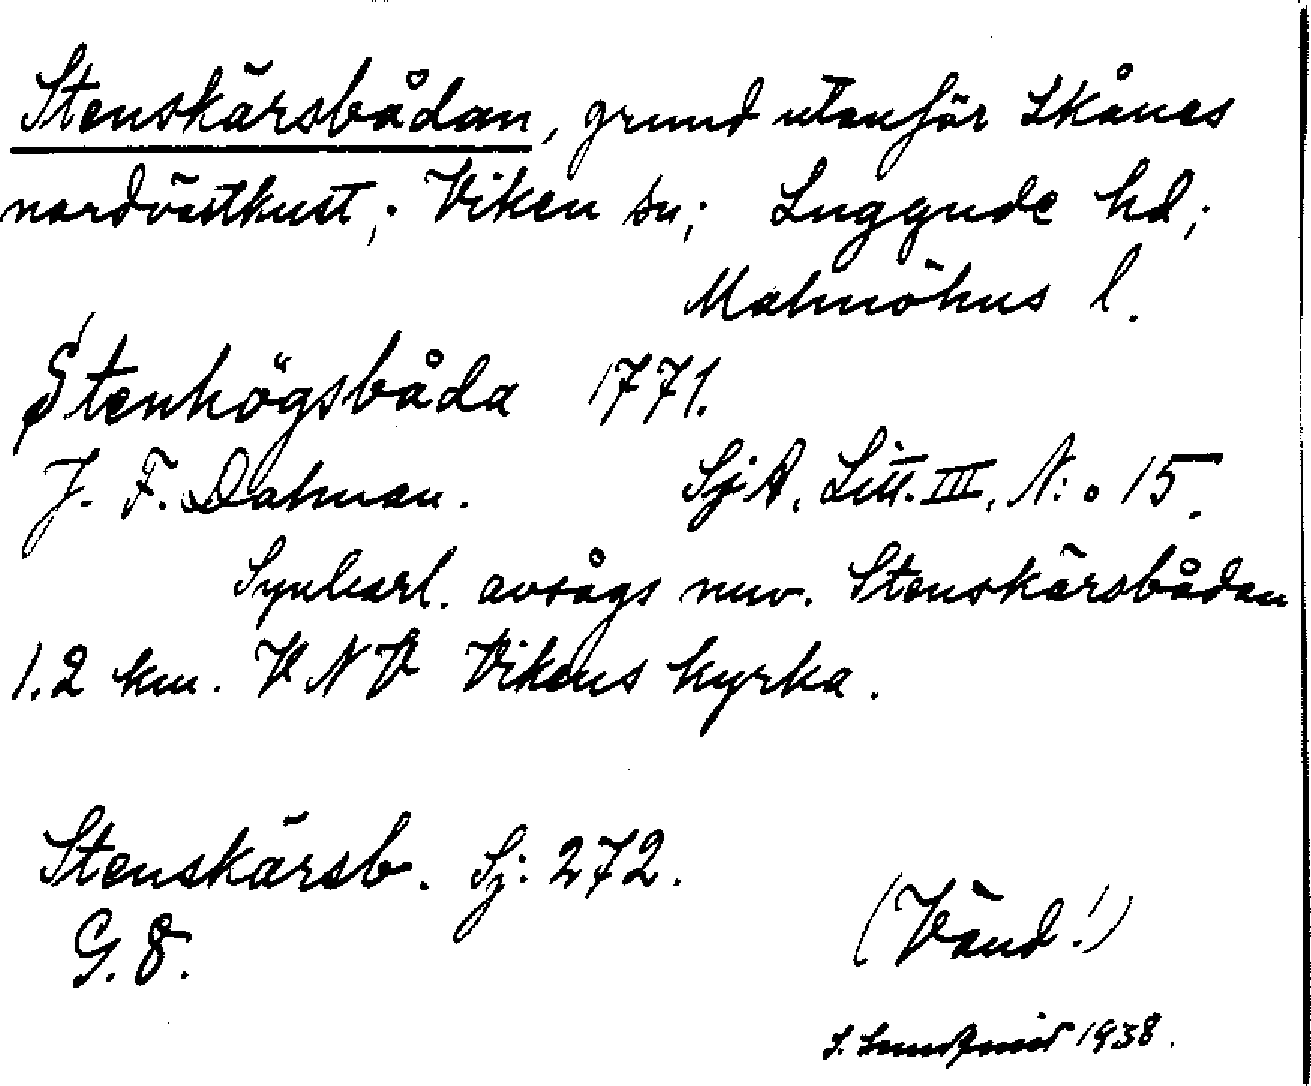 Stenskärsbådan, grund utanför Skånes
nordvästkust; Viken sn; Luggude hd;
Malmöhus l.
Stenhögsbåda 1771.
J. F. Dalman. SjA. Litt. III. N:o 15.
Synbarl. avsågs nuv. Stenskärsbådan
1.2 km. VNV Vikens kyrka.
Stenskärsb. Sj: 272.
G. 8.
(Vänd!)
1938.